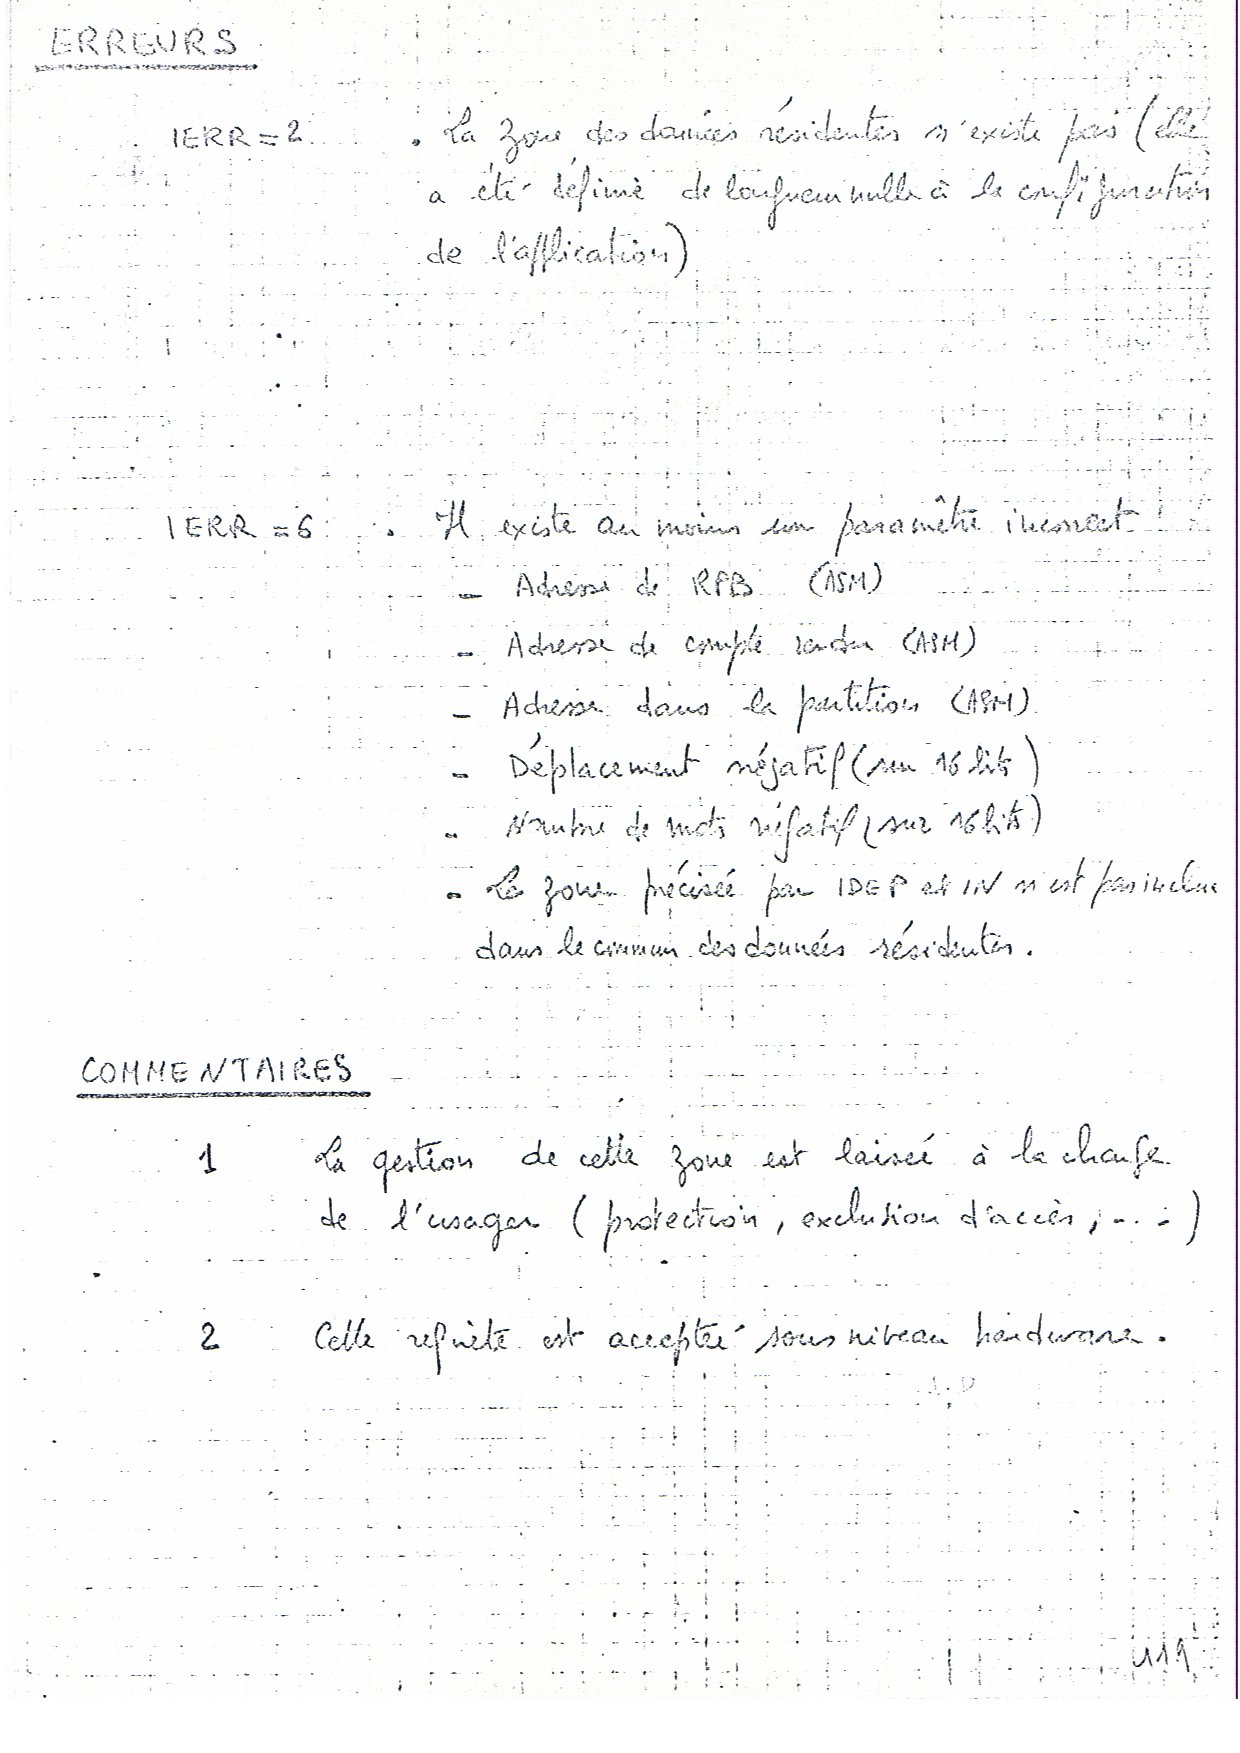 ERREURS
IERR = 2 . La zone des données résidentes n'existe pas (elle
a été définie de longueur nulle à la configuration
de l'application)
IERR = 6 . Il existe au moins un paramètre incorrect
- Adresse de RPB (ASM)
- Adresse de compte rendu (ASM)
- Adresse dans la partition (ASM)
- Déplacement négatif (sur 16 bits)
- Nombre de mots négatif (sur 16 bits)
- La zone précisée par IDEP et IN n'est pas inclue
dans le commun des données résidentes.
COMMENTAIRES
1 La gestion de cette zone est laissée à la charge
de l'usager (protection, exclusion d'accès, ...)
2 Cette requête est acceptée sous niveau hardware.
119